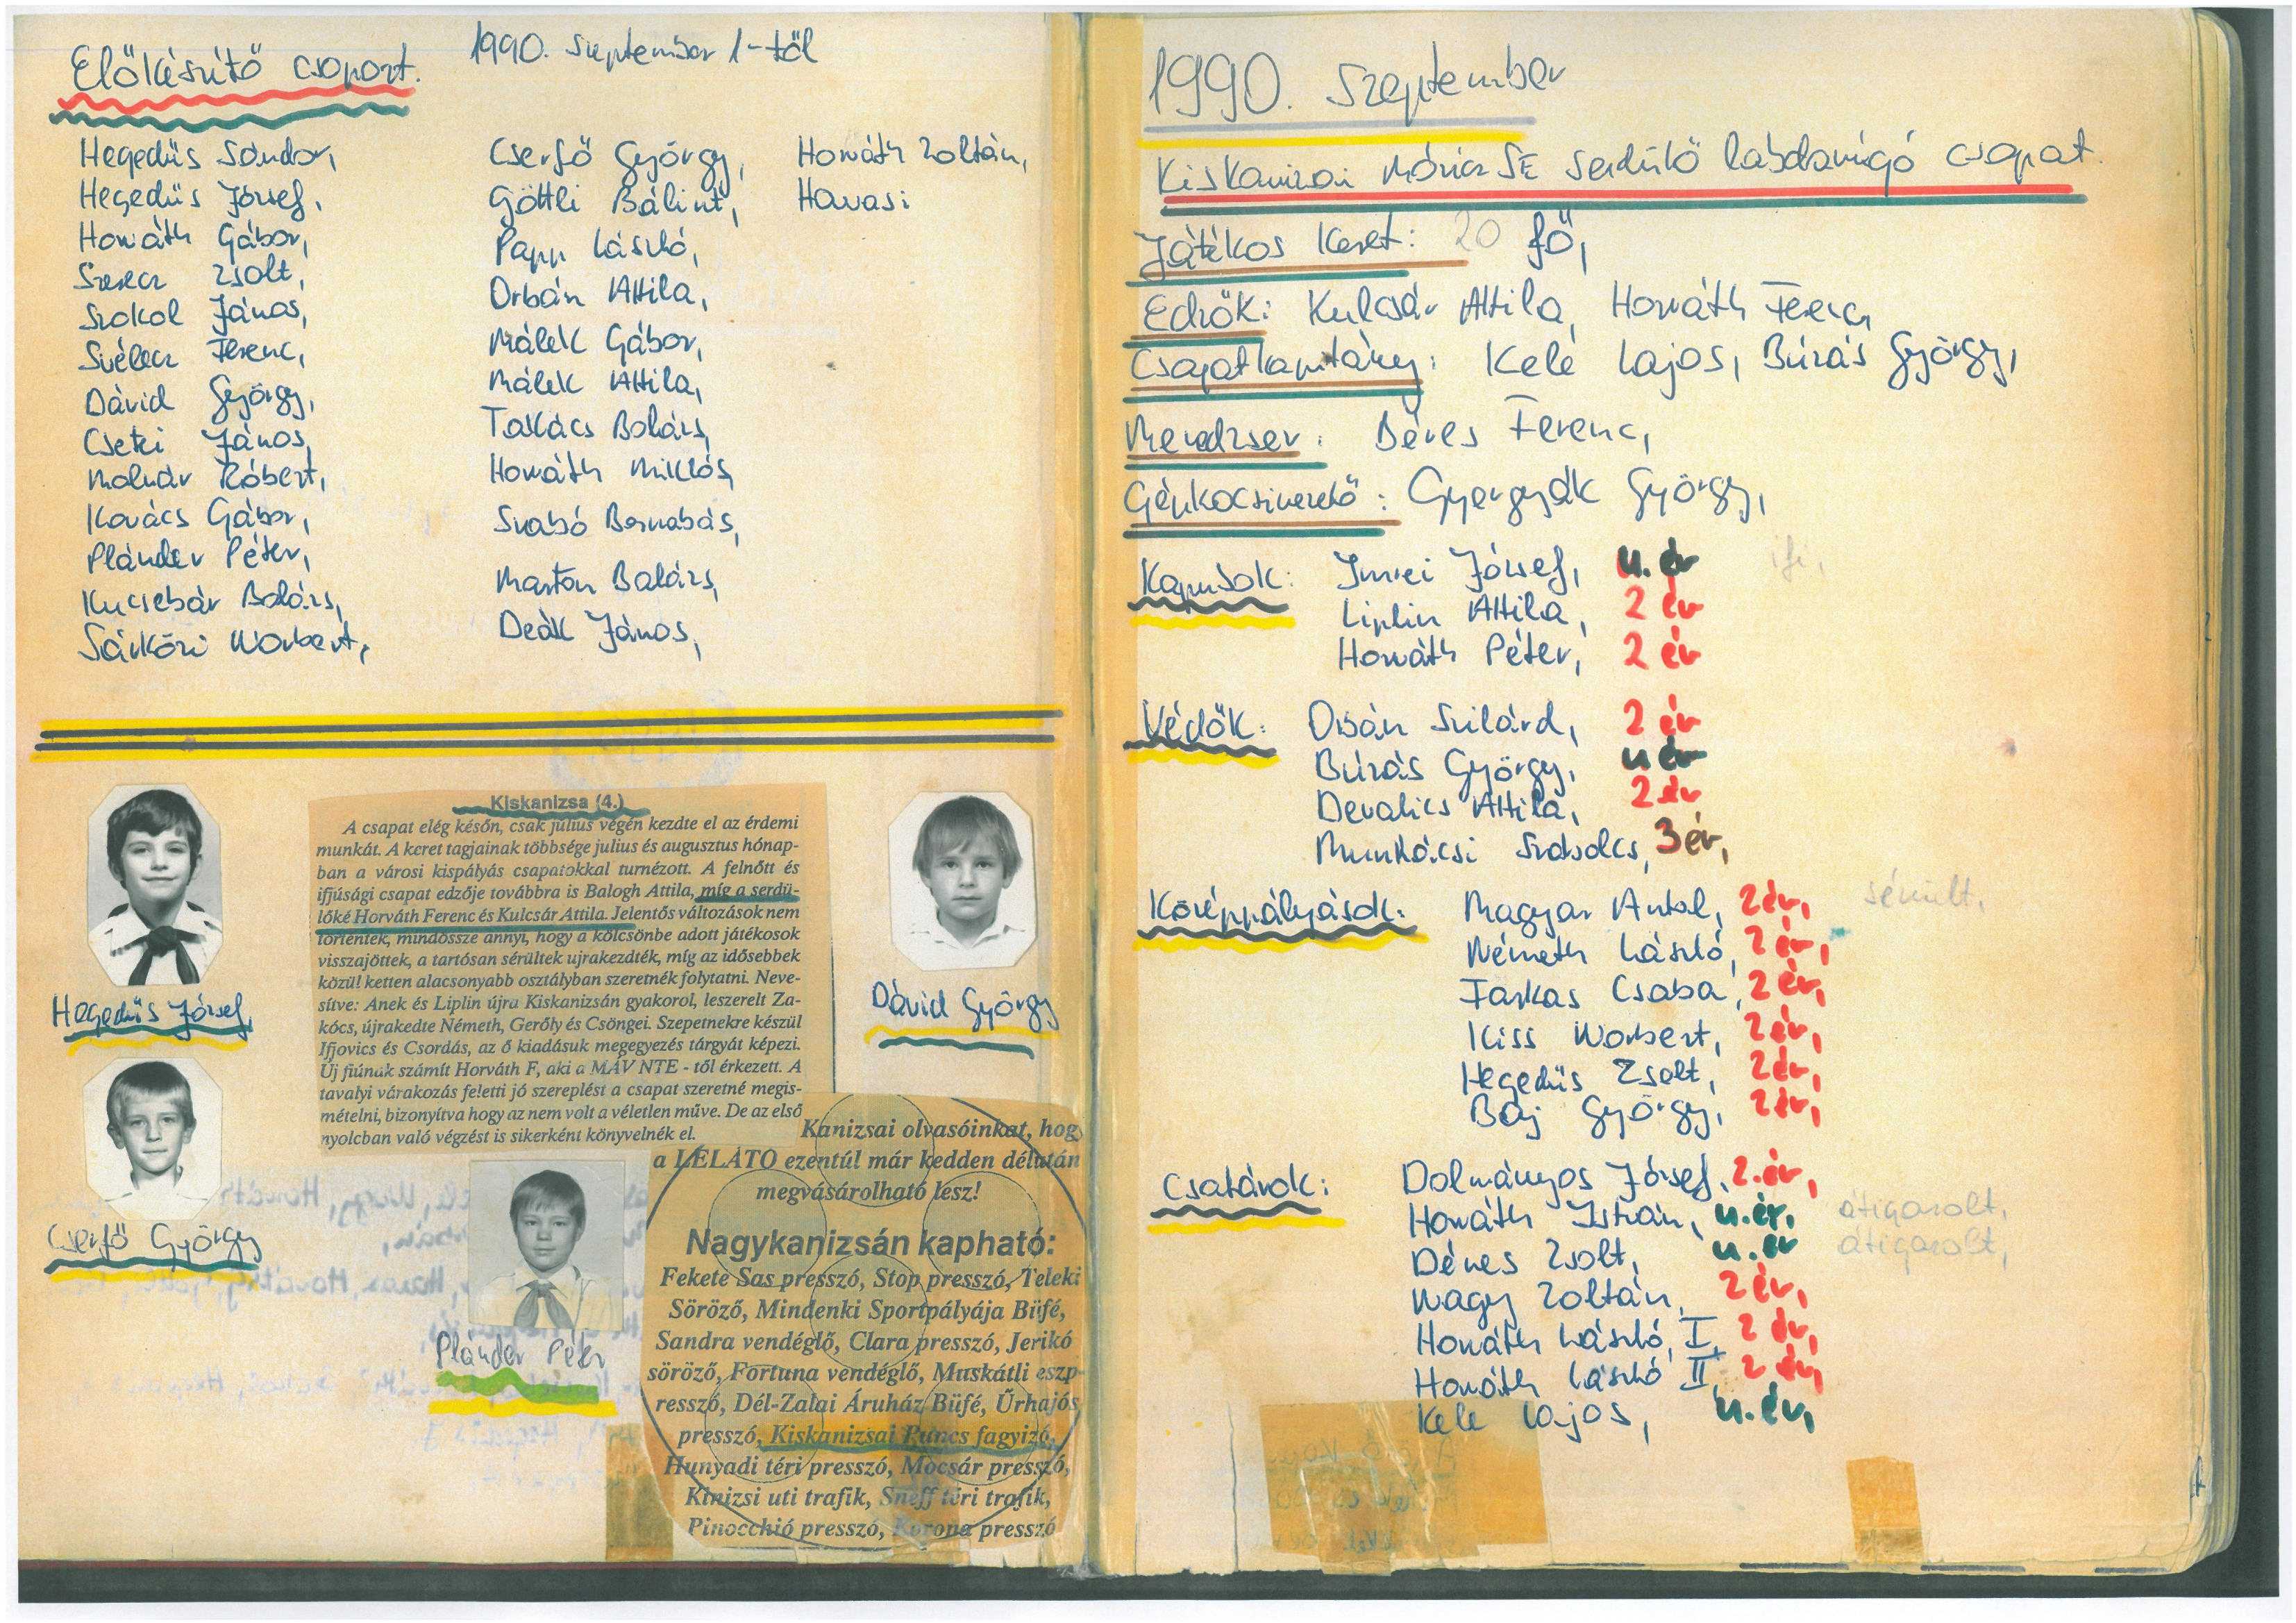 Előkészítő csoport. 1990. szeptember 1-től
Hegedüs Sándor,
Hegedüs József,
Horváth Gábor,
Szerecz Zsolt,
Szokol János,
Svélecz Ferenc,
Dávid György,
Csetei János,
Molnár Róbert,
Kovács Gábor,
Plánder Péter,
Kucsebár Balázs,
Sárközi Norbert,
Cserfő György,
Göttli Bálint,
Papp László,
Orbán Attila,
Málék Gábor,
Málek Attila,
Takács Balázs,
Horváth Miklós,
Szabó Barnabás,
Marton Balázs,
Deák János,
Horváth Zoltán,
Havasi
Hegedüs József,
Cserfő György
Plánder Péter
Dávid György
Kiskanizsa (4.)
A csapat elég későn, csak július végén kezdte el az érdemi
munkát. A keret tagjainak többsége julius és augusztus hónap-
ban a városi kispályás csapatokkal turnézott. A felnőtt és
ifjúsági csapat edzője továbbra is Balogh Attila, míg a serdü-
lőké Horváth Ferenc és Kulcsár Attila. Jelentős változások nem
történtek, mindössze annyi, hogy a kölcsönbe adott játékosok
visszajöttek, a tartósan sérültek ujrakezdték, míg az idősebbek
közül ketten alacsonyabb osztályban szeretnék folytatni. Neve-
sítve: Anek és Liplin újra Kiskanizsán gyakorol, leszerelt Za-
kócs, újrakedte Németh, Gerőly és Csöngei. Szepetnekre készül
Ifjovics és Csordás, az ő kiadásuk megegyezés tárgyát képezi.
Új fiúnak számít Horváth F, aki a MÁV NTE - től érkezett. A
tavalyi várakozás feletti jó szereplést a csapat szeretné megis-
mételni, bizonyítva hogy az nem volt a véletlen műve. De az első
nyolcban való végzést is sikerként könyvelnék el.
Kanizsai olvasóinkat, hog
a LELÁTO ezentúl már kedden délután
megvásárolható lesz!
Nagykanizsán kapható:
Fekete Sas presszó, Stop presszó, Teleki
Söröző, Mindenki Sportpályája Büfé,
Sandra vendéglő, Clara presszó, Jerikó
söröző, Fortuna vendéglő, Muskátli eszp-
resszó, Dél-Zalai Áruház Büfé, Űrhajós
presszó, Kiskanizsai Puncs fagyizó,
Hunyadi téri presszó, Mocsár presszó,
Kinizsi uti trafik, Sneff téri trafik,
Pinocchió presszó, Korona presszó
1990. Szeptember
Kiskanizsai Móricz SE serdülő labdarúgó csapat.
Játékos keret: 20 fő,
Edzők: Kulcsár Attila, Horváth Ferenc,
Csapatkapitány: Kele Lajos, Búzás György,
Menedzser: Béres Ferenc,
Gépkocsivezető: Gyergyák György,
Kapusok: Imrei József, u. év ifi,
Liplin Attila, 2 év
Horváth Péter, 2 év
Védők: Orbán Szilárd, 2 év
Búzás György, u év
Devalics Attila, 2 év
Munkácsi Szabolcs, 3 év,
Középpályások: Magyar Antal, 2 év, sérült,
Németh László, 2 év,
Farkas Csaba, 2 év,
Kiss Norbert, 2 év,
Hegedüs Zsolt, 2 év,
Baj György, 2 év,
Csatárok: Dolmányos József, 2. év,
Horváth István, u. év, átigazolt,
Dénes Zsolt, u. év átigazolt,
Nagy Zoltán, 2 év,
Horváth László, I, 2 év,
Horváth László II, 2 év,
Kele Lajos, u. év,